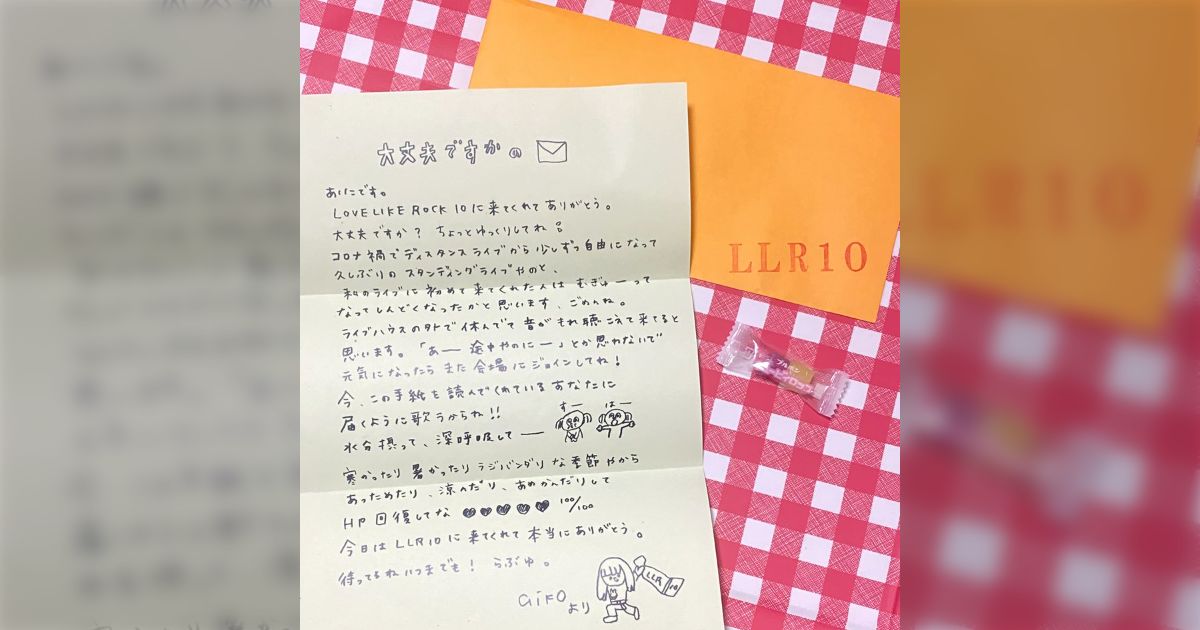 大丈夫ですかの
あいこです。
LOVE LIKE ROCK 10に来てくれてありがとう。
大丈夫ですか？ ちょっとゆっくりしてね
コロナ禍でディスタンスライブから少しずつ自由になって
久しぶりのスタンディングライブやのと、
私のライブに初めて来てくれた人は むぎゅーって
なってしんどくなったかと思います、ごめんね。
ライブハウスの外で休んでて音がもれ聴こえて来てると
思います。「あー 途中やのにー」とか思わないで
元気になったらまた会場にジョインしてね！
今、この手紙を読んでくれているあなたに
届くように歌うからね!!
すー はー
水分摂って、深呼吸してー
寒かったり暑かったりラジバンダリな季節やから
あっためたり、涼んだり、あめかんだりして
HP回復してな ♥♥♥♥♥ 100/100
今日はLLR10に来てくれて本当にありがとう。
待ってるねいつまでも！ らぶゆ。
aikoより
LLR 10
LLR10